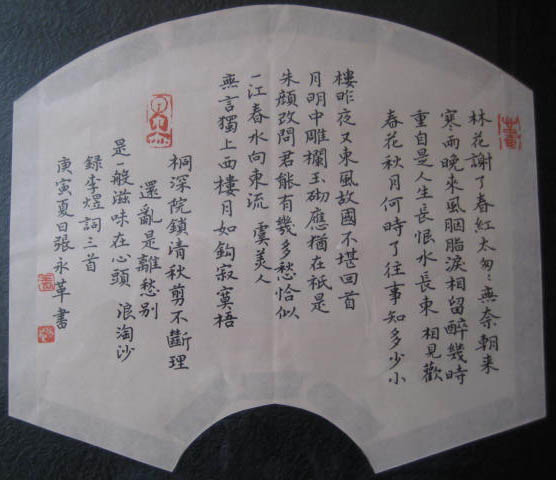 林花謝了春紅太匆〻無奈朝来
寒雨晚来風胭脂淚相留醉幾時
重自是人生長恨水長東 相見歡
春花秋月何時了往事知多少小
樓昨夜又東風故國不堪回首
月明中雕欄玉砌應猶在祇是
朱顔改問君能有幾多愁恰似
一江春水向東流 虞美人
無言獨上西樓月如鉤寂寞梧
桐深院鎖清秋剪不斷理
還亂是離愁別
是一般滋味在心頭 浪淘沙
録李煜詞三首
庚寅夏日張永革書